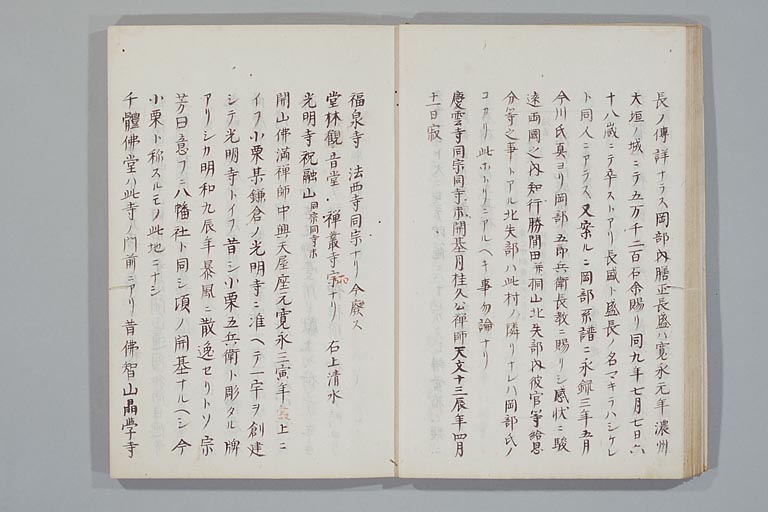 長ノ傳詳ナラス岡部内膳正長盛ハ寛永元年濃州
大垣ノ城ニテ五万千二百石余賜リ同九年七月七日六
十八歳ニテ卒ストアリ長盛ト盛長ノ名マキラハシケレ
ト同人ニアラス又案ルニ岡部系譜ニ永録三年五月
今川氏真ヨリ岡部五郎兵衛長教ニ賜リシ感状ニ駿
遠両國之内知行勝間田並桐山北矢部内彼官等給恩
分等之事トアル北矢部ハ此村ノ隣リナレハ岡部氏ノ
コアリ此ホトリニアルヘキ事勿論ナリ
慶雲寺同宗同寺末開基月桂久公禅師天文十三辰年四月
十一日寂
福泉寺 法西寺同宗ナリ今廢ス
堂林觀音堂・禅叢寺宗ナリ 石上清水
光明寺祝融山同宗同寺末
開山佛満禅師中興天屋座元寛永三寅年寂上ニ
イフ小栗某鎌倉ノ光明寺ニ准ヘテ一宇ヲ創建
シテ光明寺トイフ昔シ小栗五兵衛ト彫タル牌
アリシカ明和九辰年暴風ニ散逸セリトソ宗
芳曰意フニ八幡社ト同シ頃ノ開基ナルヘシ今
小栗ト称スルモノ此地ニナシ
千體佛堂ハ此寺ノ門前ニアリ昔佛智山晶學寺